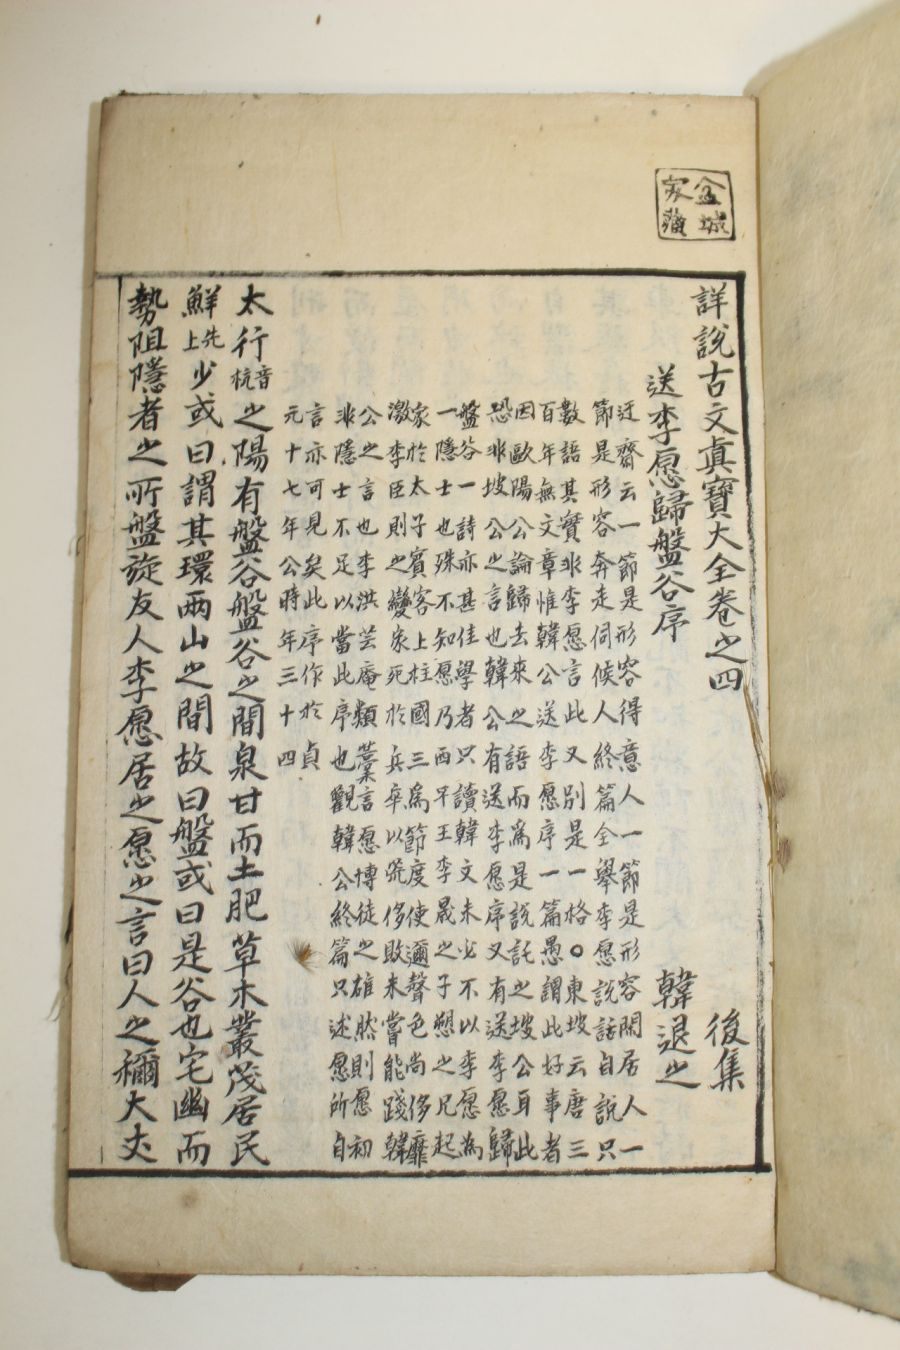 金城
家藏
詳說古文眞寶大全卷之四
後集
送李愿歸盤谷序
韓退之
迂齋云一節是形容得意人一節是形容閒居人一
節是形容奔走伺候人終篇全擧李愿說話自說只
數語其實非李愿言此又別是一格○東坡云唐三
百年無文章惟韓公送李愿序一篇愚謂此好事者
因歐陽公論歸去來之語而爲是說託之坡公耳此
恐非坡公之言也韓公有送李愿序又有送李愿歸
盤谷一詩亦甚佳學者只讀韓文未必不以李愿為
一隱士也殊不知愿乃西平王李晟之子愬之兄起
家於太子賓客上柱國三爲節度使邇聲色尚侈靡
激李臣則之變家死於兵卒以荒侈敗未嘗能踐韓
公之言也李洪芸庵類藁言愿博徒之雄然則愿初
非隱士不足以當此序也觀韓公終篇只述愿所自
言亦可見矣此序作於貞
元十七年公時年三十四
太行音杭之陽有盤谷盤谷之間泉甘而土肥草木叢茂居民
鮮上先少或曰謂其環兩山之間故曰盤或曰是谷也宅幽而
勢阻隱者之所盤旋友人李愿居之愿之言曰人之稱大丈